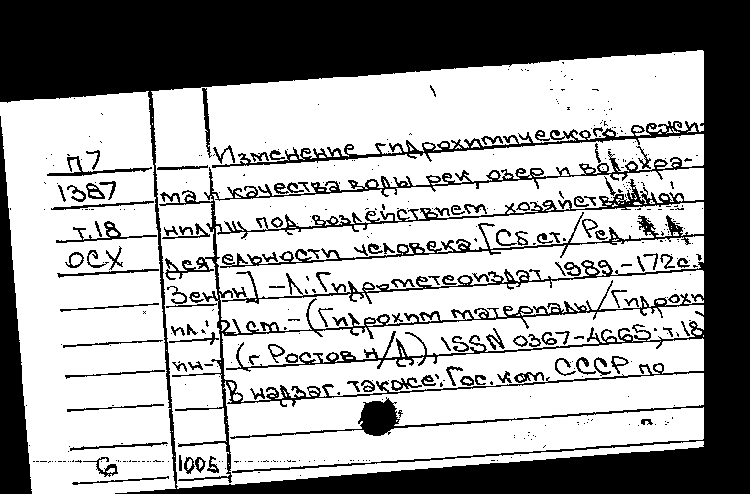 Изменение гидрохимического режи-
П7
1387 ма и качества воды рек, озер и водохра-
т.18 нилищ под воздействием хозяйственной
ОСХ деятельности человека: [Сб.ст./Ред.
Зенин]. -Л.: Гидрометеоиздат, 1989.-172с.:
ил.; 21 см.- (Гидрохим материалы/Гидрохим
ин-т (г. Ростов н/Д), ISSN 0367-4665; т.18)
В надзаг. также: Гос. ком. СССР по
6 1005